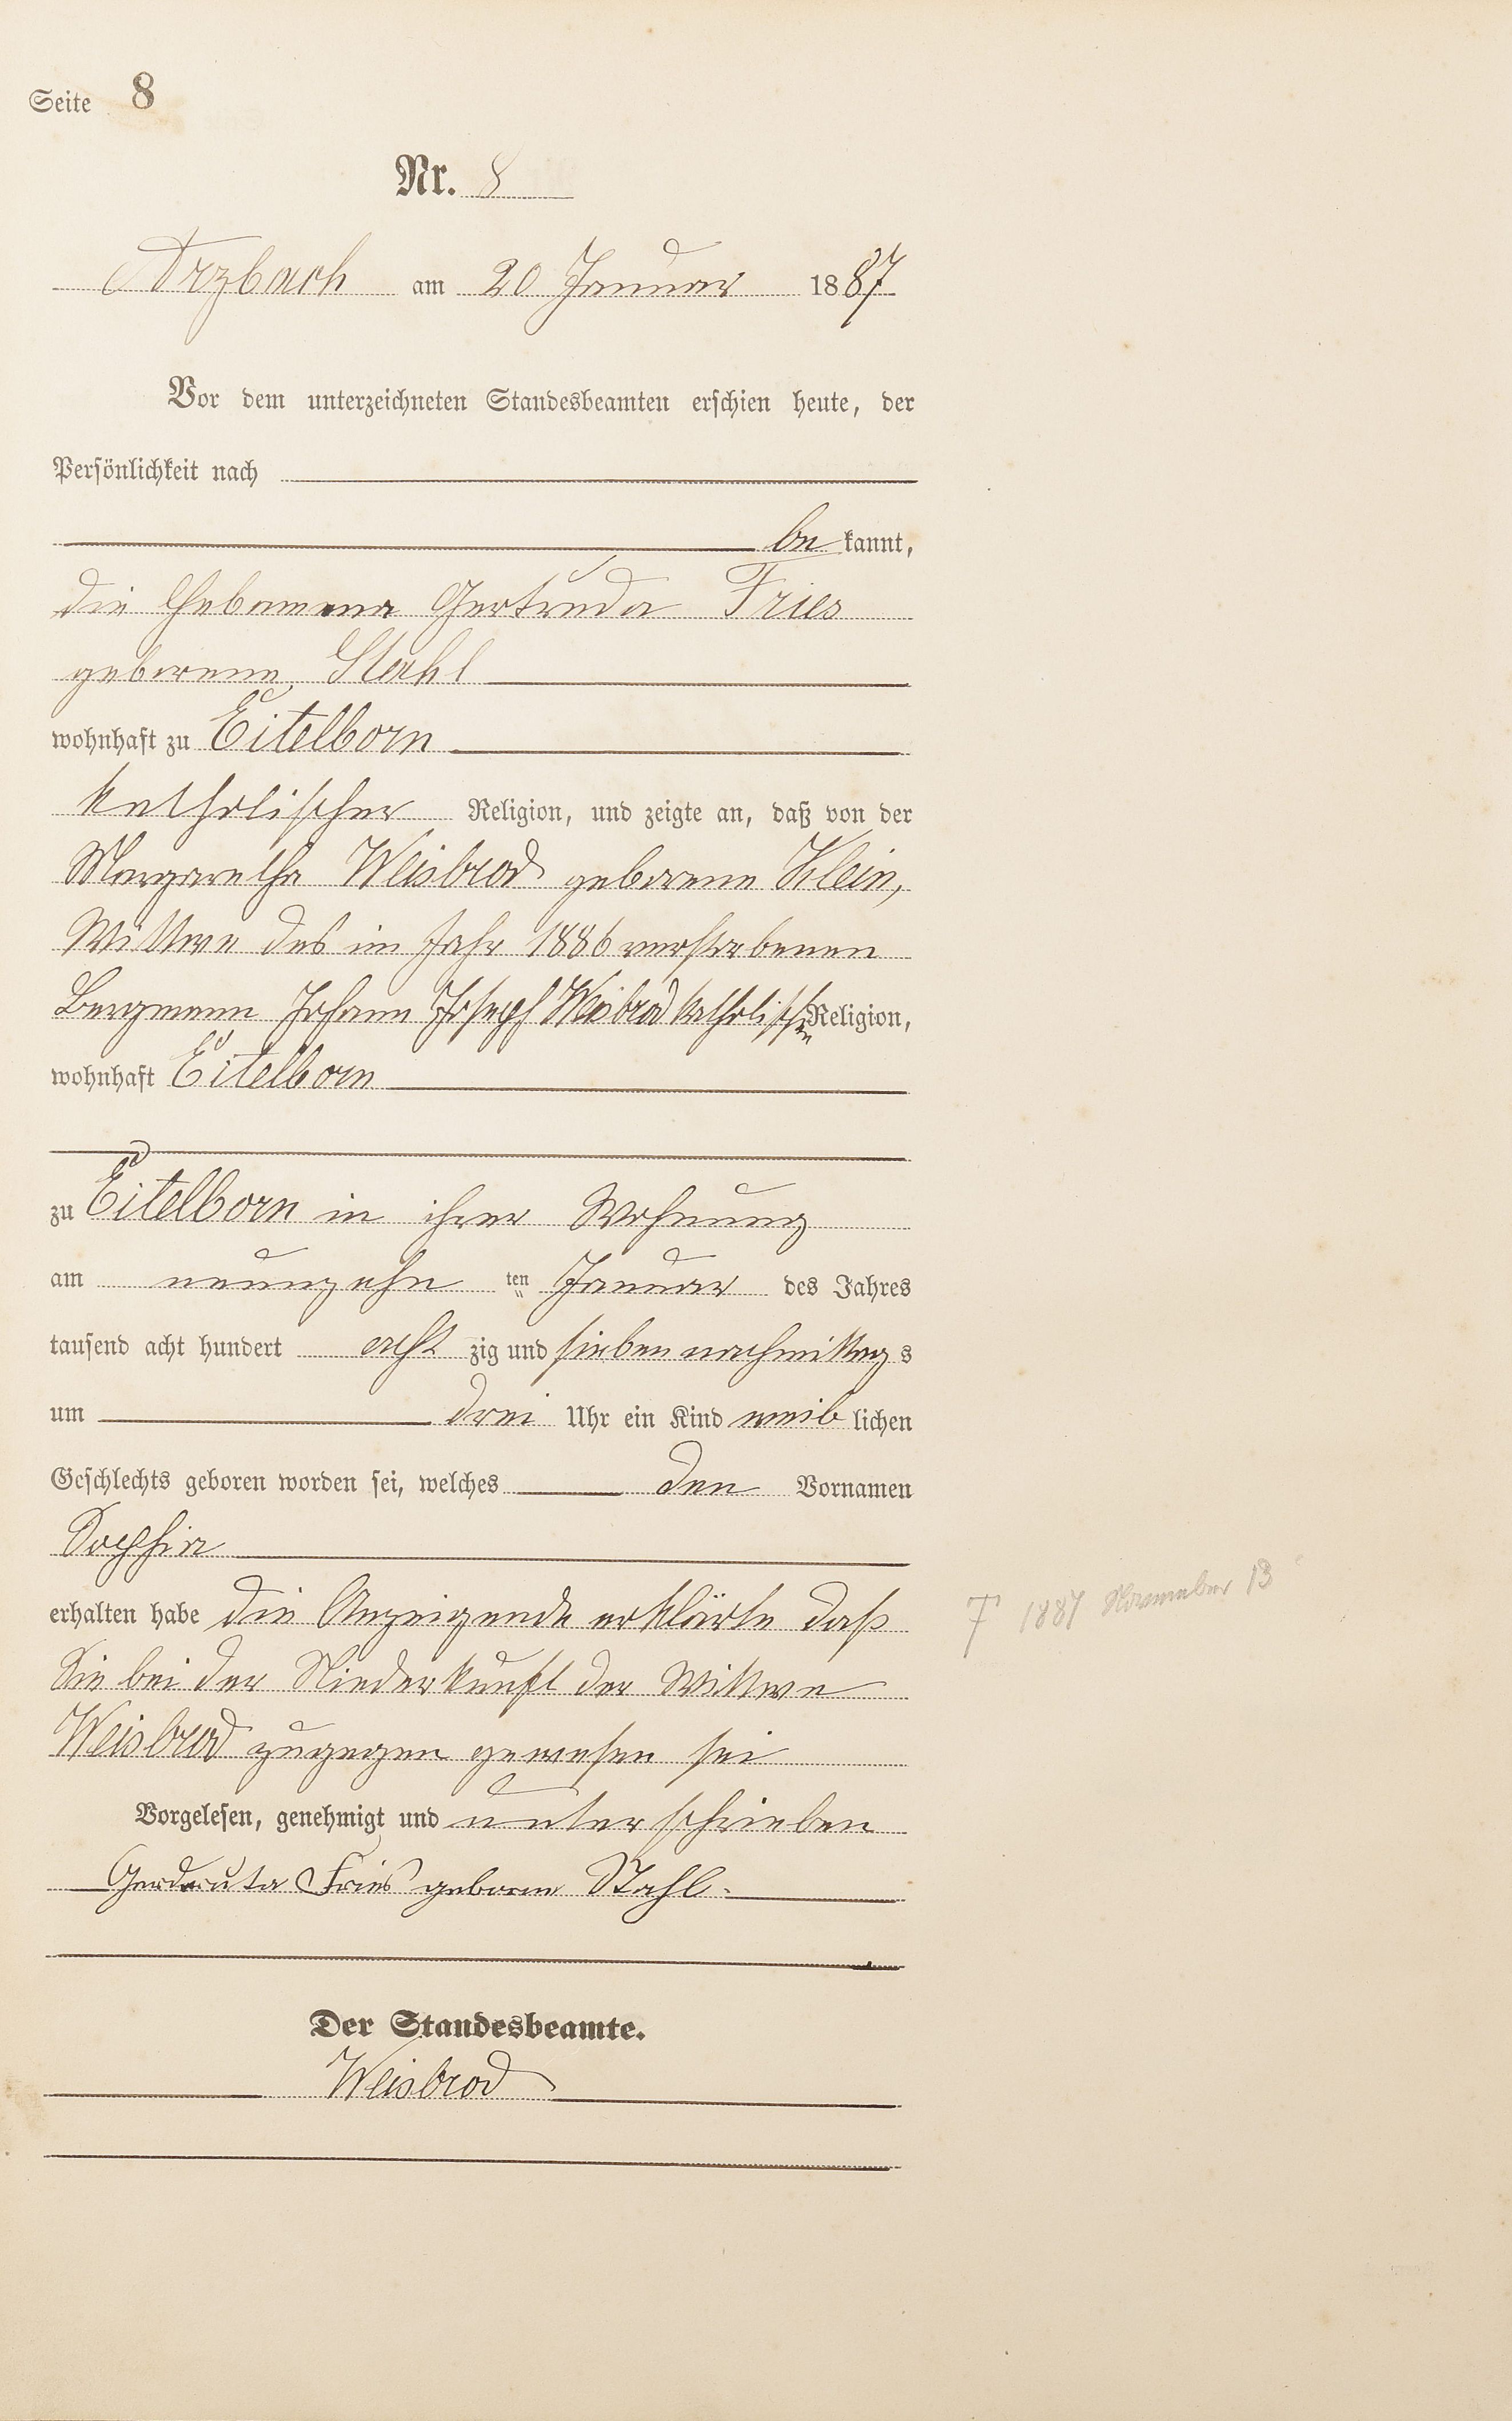 Seite 8
Nr. 8
Arzbach am 20 Januar 1887
Vor dem unterzeichneten Standesbeamten erschien heute, der
Persönlichkeit nach
be kannt,
die Hebamme Gertruda Fries
geborene Stahl
wohnhaft zu Eitelborn
katholischer Religion, und zeigte an, daß von der
Margaretha Weisbrod geborene Klein,
Wittwe des im Jahr 1886 verstorbenen
Bergmann Johann Joseph Weisbrod katholischer Religion,
wohnhaft Eitelborn
zu Eitelborn in ihrer Wohnung
am neunzehn ten Januar des Jahres
tausend acht hundert acht zig und sieben nachmittags
um drei Uhr ein Kind weib lichen
Geschlechts geboren worden sei, welches den Vornamen
Sophia
erhalten habe die Anzeigende erklärte daß
Sie bei der Niederkunft der Wittwe
Weisbrod zugegen gewesen sei
Vorgelesen, genehmigt und unterschrieben
Gerdruta Fries geborene Stahl.
Der Standesbeamte.
Weisbrod
† 1887 November 13